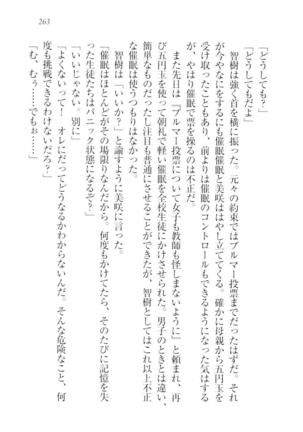 263
「どうしても？」
「どうしてもだよ」
　智樹は強く首を横に振った。元々の約束ではブルマー投票までだったはずだ。それ
が今やなにをするにも催眠催眠と美咲ははやし立ててくる。確かに母親から五円玉を
受け取ったこともあり、前よりは催眠のコントロールもできるようになった気はする
が、やはり催眠で票を操るのは不正だ。
　また先日は「ブルマー投票について女子も教師も怪しまないように」と頼まれ、再
び五円玉を使って朝礼で軽い催眠を全校生徒にかけさせられた。男子のときとは違い
簡単なものだったし注目も普通にさせることができたが、智樹としてはこれ以上不正
な催眠は使うつもりはなかった。
　智樹は「いいか？」と諭すように美咲に言った。
「催眠はほとんどがその場限りなんだから。何度もかけてたら、そのたびに記憶を失
った生徒たちはパニック状態になるぞ？」
「いいじゃない。別に」
「よくないって！　オレにだってどうなるかわからないんだ。そんな危険なこと、何
度も挑戦できるわけないだろ？」
「む、むぅ……でもぉ……」